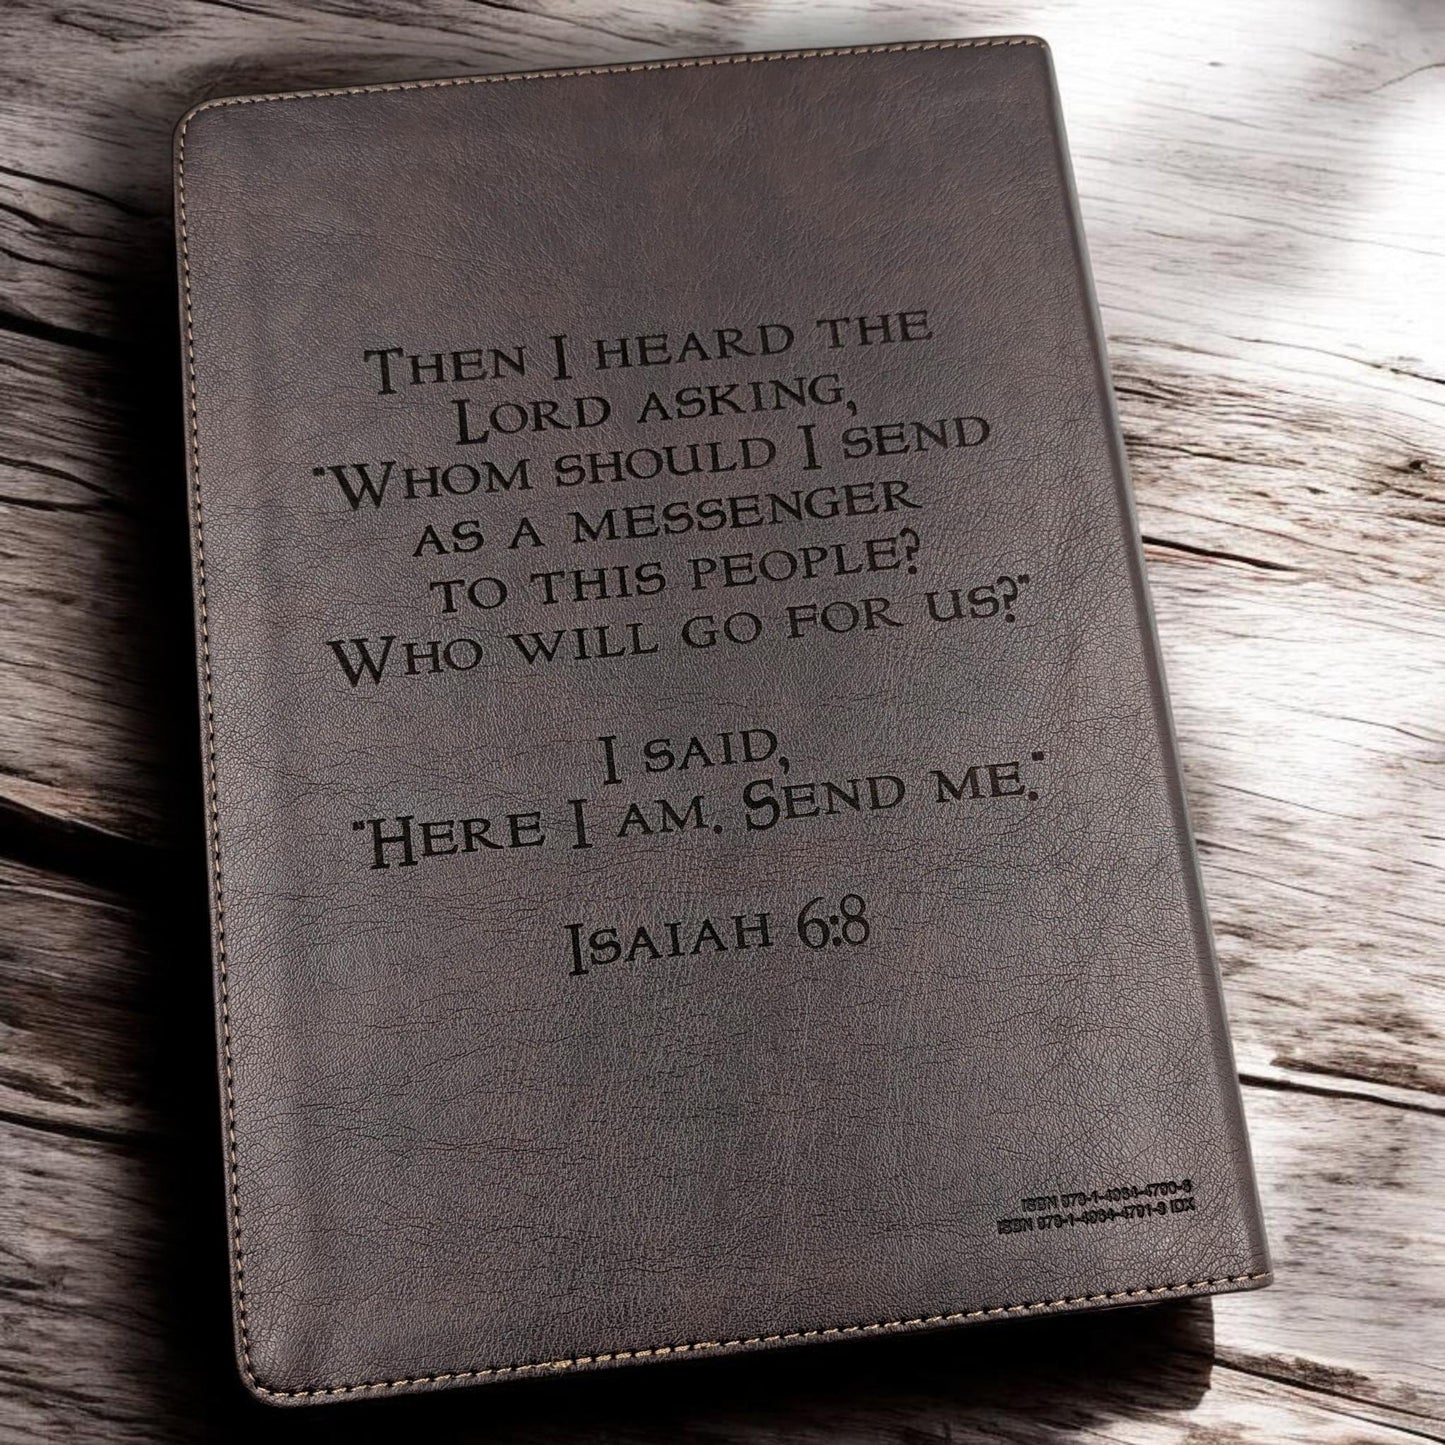 THEN I HEARD THE
LORD ASKING,
"WHOM SHOULD I SEND
AS A MESSENGER
TO THIS PEOPLE?
WHO WILL GO FOR US?"
I SAID,
"HERE I AM. SEND ME."
ISAIAH 6:8
ISBN 978-1-4964-4790-6
ISBN 978-1-4964-4791-3 IDX